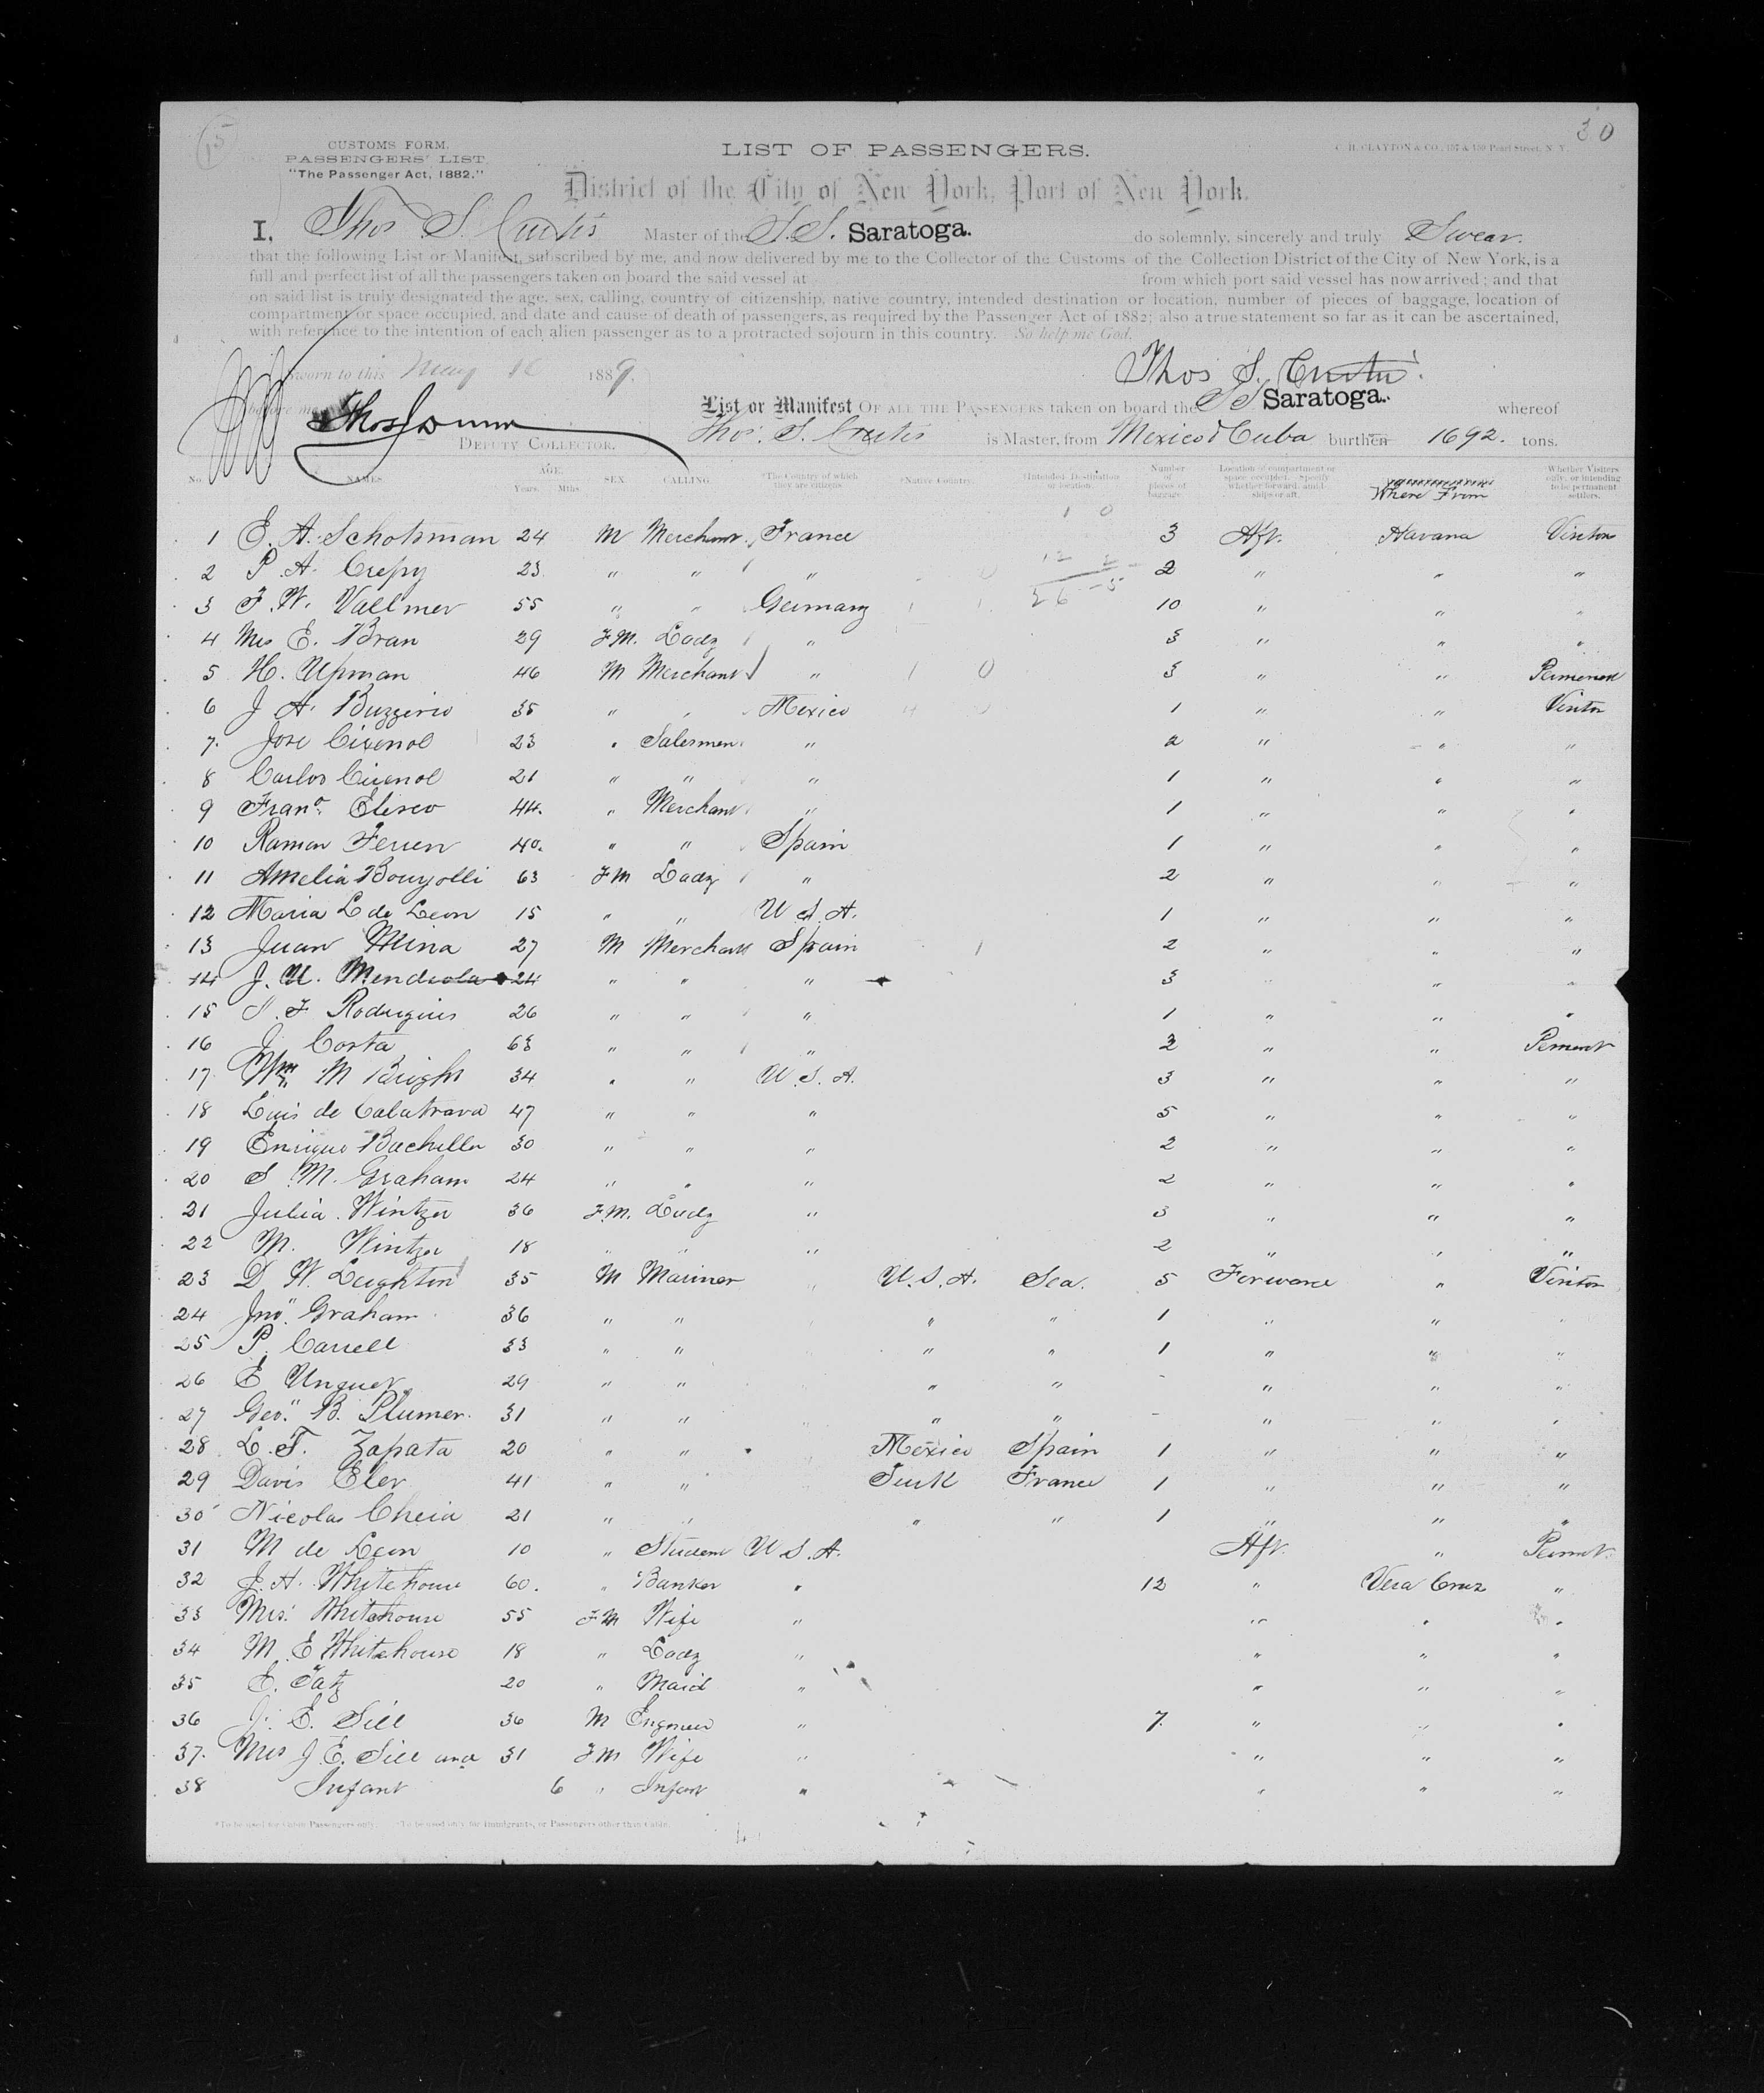 15
30
CUSTOMS FORM.
PASSENGERS' LIST.
"The Passenger Act, 1882."
LIST OF PASSENGERS.
C. H. CLAYTON & CO., Pearl Street, N. Y.
District of the City of New York, Port of New York.
I, Thos S. Curtis Master of the S.S. Saratoga. do solemnly, sincerely and truly Swear.
that the following List or Manifest, subscribed by me, and now delivered by me to the Collector of the Customs of the Collection District of the City of New York, is a
full and perfect list of all the passengers taken on board the said vessel at from which port said vessel has now arrived; and that
on said list is truly designated the age, sex, calling, country of citizenship, native country, intended destination or location, number of pieces of baggage, location of
compartment or space occupied, and date and cause of death of passengers, as required by the Passenger Act of 1882; also a true statement so far as it can be ascertained,
with reference to the intention of each alien passenger as to a protracted sojourn in this country. So help me God.
Sworn to this May 16 1889. Thos S. Curtis.
before me
DEPUTY COLLECTOR.
List or Manifest OF ALL THE PASSENGERS taken on board the SS Saratoga. whereof
Thos. S. Curtis is Master, from Mexico & Cuba burthen 1692. tons.
No. NAMES. AGE. Years. Mths. SEX. CALLING. *The Country of which they are citizens. †Native Country. †Intended Destination or location. Number of pieces of baggage. Location of compartment or space occupied. Specify whether forward, amidships or aft. Where From Whether Visitors only, or intending to be permanent settlers.
1 E. A. Schotsman 24 M Merchant. France 3 Aft. Havana Visitor
2 P. A. Crepy 23 " " " 2 " " "
3 F. W. Vallmer 55 " " Germany 10 " " "
4 Mrs E. Bran 29 FM. Lady " 3 " " "
5 H. Upman 46 M Merchant " 3 " " Permenent
6 J A. Buzzirio 35 " " Mexico 1 " " Visitor
7. Jose Cixenol 23 " Salesmen. " 2 " " "
8 Carlos Cixenol 21 " " " 1 " " "
9 Frano. Elisco 44. " Merchant " 1 " " "
10 Ramon Ferren 40. " " Spain 1 " " "
11 Amelia Bouyolli 63 FM Lady " 2 " " "
12 Maria L de Leon 15 " " U.S.A. 1 " " "
13 Juan Mina 27 M Merchant Spain 2 " " "
14 J. U. Mendiola 24 " " " 3 " " "
15 S. F Rodrigues 26 " " " 1 " " "
16 J. Costa 63 " " " 2 " " Perment
17. Wm M Bright 34 " " U.S.A. 3 " " "
18 Luis de Calatrava 47 " " " 5 " " "
19 Enrique Bachiller 30 " " " 2 " " "
20 S M. Graham 24 " " " 2 " " "
21 Julia Wintzer 36 FM. Lady " 3 " " "
22 M. Wintzer 18 " " " 2 " " "
23 D. W. Leighton 35 M Mariner " U.S.A. Sea. 5 Forward " Visitor
24 Jno" Graham 36 " " " " " 1 " " "
25 P. Carrell 33 " " " " " 1 " " "
26 E Unguer 29 " " " " - " " "
27 Geo." B. Plumer. 31 " " " " " - " " "
28 L. F. Zapata 20 " " " Mexico Spain 1 " " "
29 Davis Eler 41 " " " Turk France 1 " " "
30 Nicolas Cheia 21 " " " " 1 " " "
31 M de Leon 10 " Student U.S.A. Aft. " Permnt.
32 J. A. Whitehouse 60. " Banker " 12 " Vera Cruz "
33 Mrs. Whitehouse 55 FM Wife " " " "
34 M. E Whitehouse 18 " Lady " " " "
35 E. Tatz 20 " Maid " " " "
36 J. E. Sill 36 M Engineer " 7. " " "
37. Mrs J. E. Sill and 31 FM Wife " " " "
38 Infant 6 " Infant " " " "
*To be used for Cabin Passengers only. †To be used only for Immigrants, or Passengers other than Cabin.